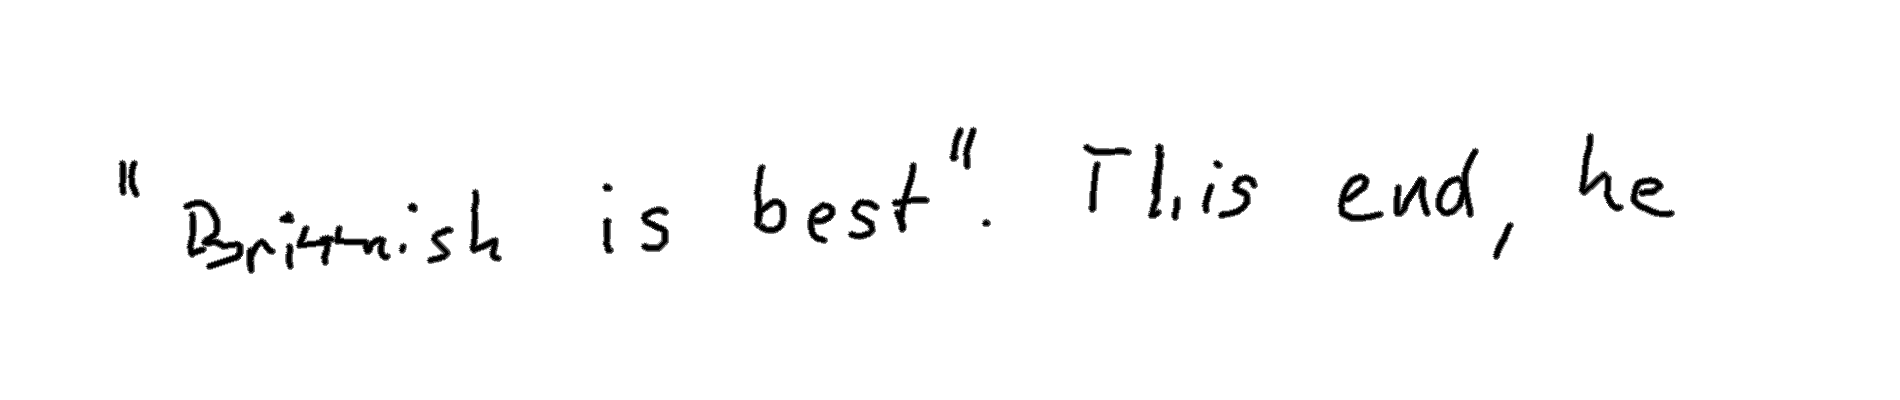 "Brittnish is best". This end, he